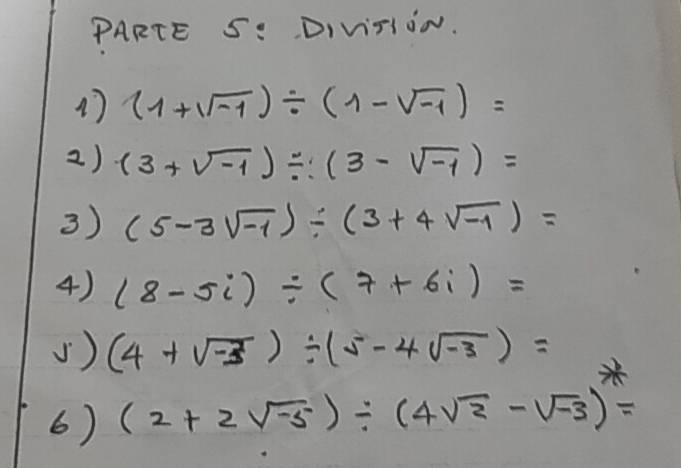 PARTE 5: DIVISIÓN.
1) (1+√-1) ÷ (1-√-1) =
2) (3+√-1) ÷ (3-√-1) =
3) (5-3√-1) ÷ (3+4√-1) =
4) (8-5i) ÷ (7+6i) =
5) (4+√-3) ÷ (5-4√-3) =
6) (2+2√-5) ÷ (4√2-√-3)* =